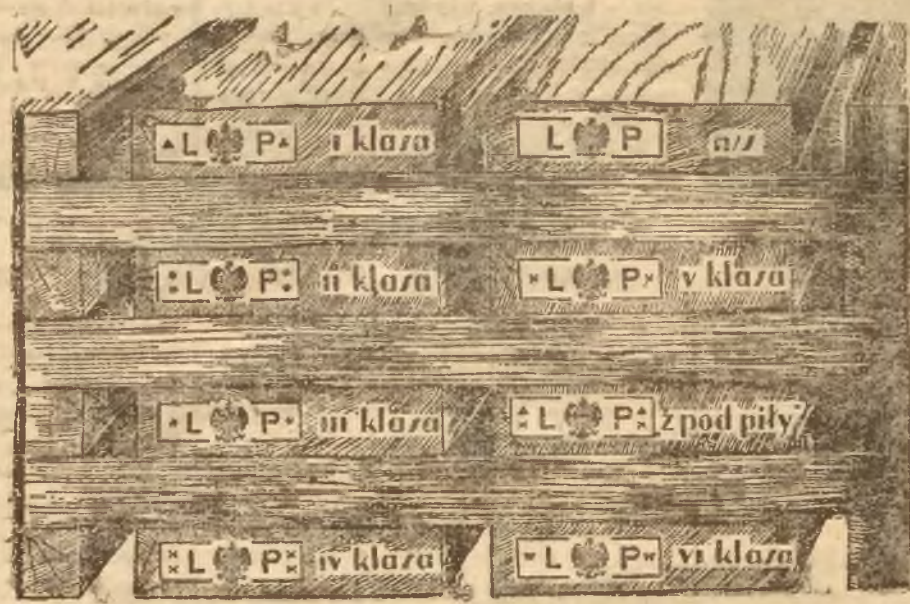 L P I klasa
L P n/s
L P II klasa
L P V klasa
L P III klasa
L P z pod piły"
L P IV klasa
L P VI klasa